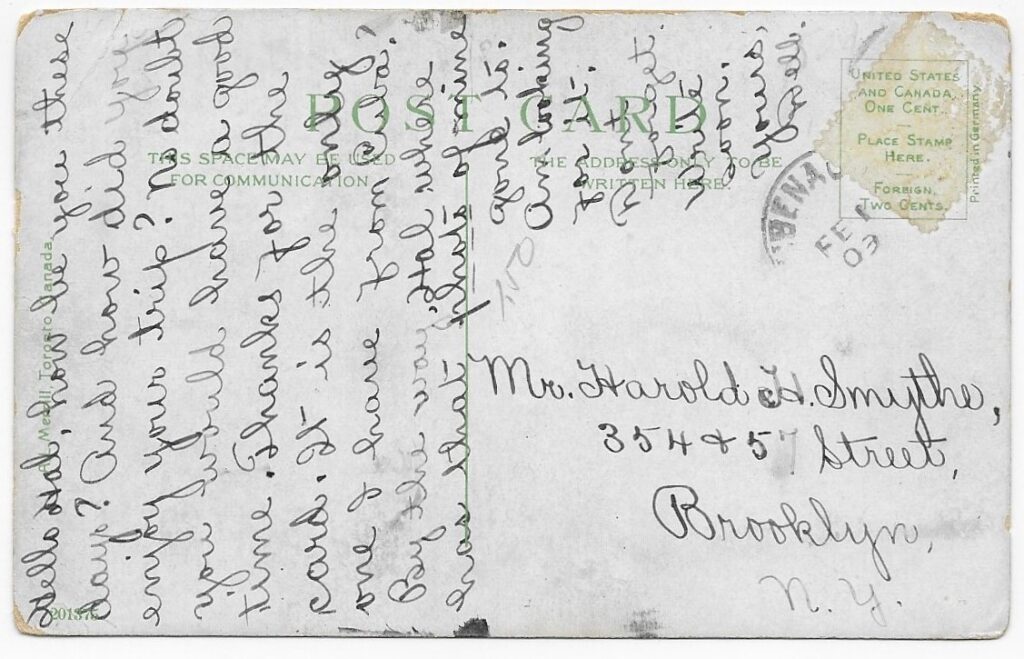 POST CARD
THIS SPACE MAY BE USED
FOR COMMUNICATION
THE ADDRESS ONLY TO BE
WRITTEN HERE.
UNITED STATES
AND CANADA,
ONE CENT.
PLACE STAMP
HERE.
FOREIGN,
TWO CENTS.
Printed in Germany
Toronto, Canada
Hello Hal, how be you these
days? And how did you
enjoy your trip? No doubt
you would have a good
time. Thanks for the
card. It is the only
one I have from Cuba.
By the way, Hal where
has that photo of mine
gone to.
Am looking
for it.
Dont
forget.
Write
soon.
Yours,
150
Mr. Harold H. Smythe,
354 & 57 Street,
Brooklyn,
N. Y.
FE
03